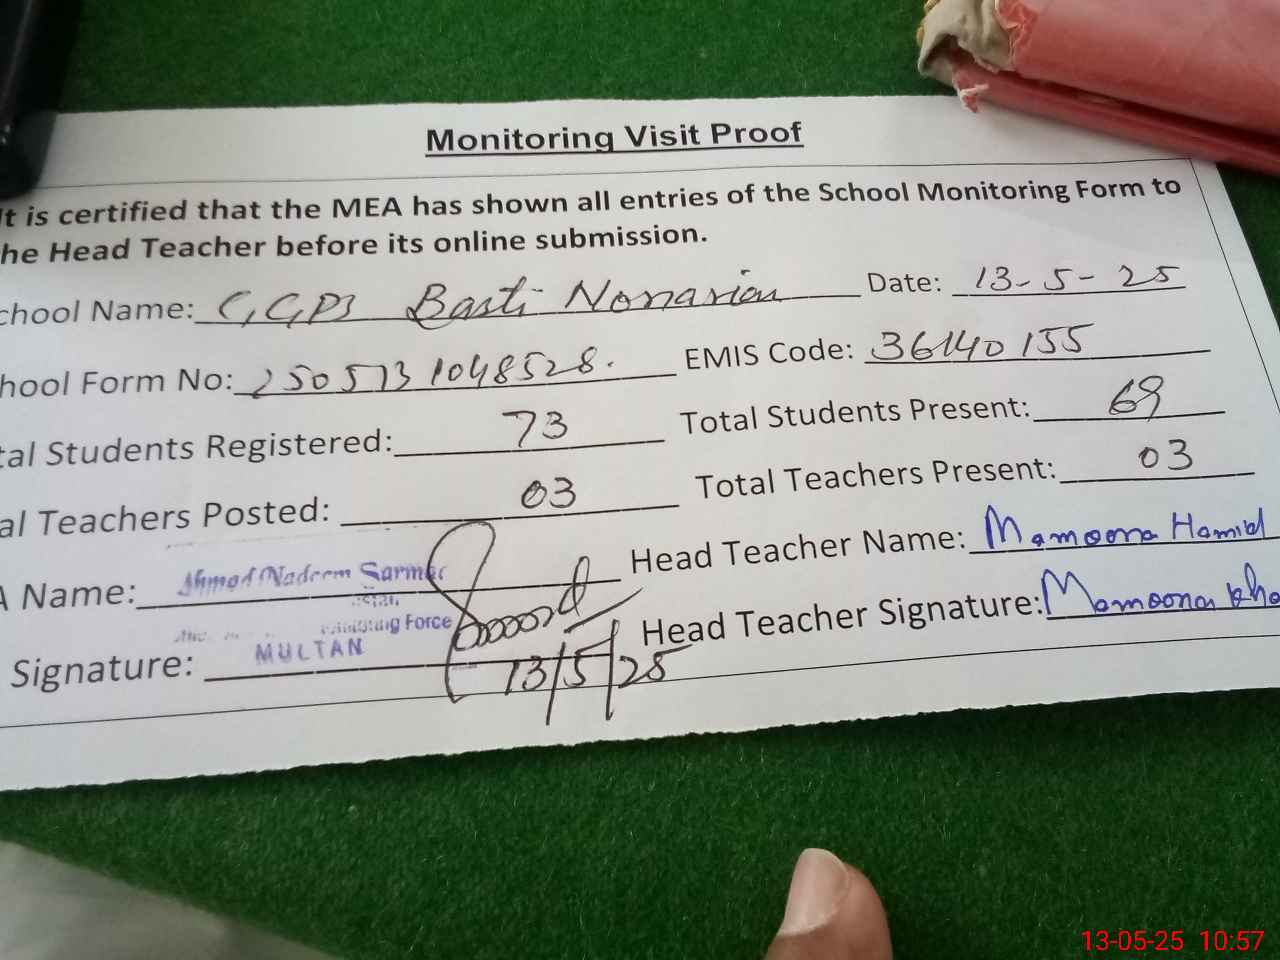 Monitoring Visit Proof
It is certified that the MEA has shown all entries of the School Monitoring Form to
he Head Teacher before its online submission.
chool Name: GGPS Basti Nonarian Date: 13-5-25
hool Form No: 2505131048528. EMIS Code: 36140155
tal Students Registered: 73 Total Students Present: 69
al Teachers Posted: 03 Total Teachers Present: 03
A Name: Ahmad Nadeem Sarmad Head Teacher Name: Mamoona Hamid
Force
Signature: MULTAN 13/5/25 Head Teacher Signature: Mamoona kha
13-05-25 10:57